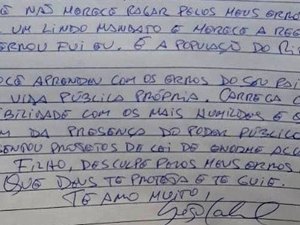 E NÃO MERECE PAGAR PELOS MEUS ERROS
UM LINDO MANDATO E MERECE A REE
ERNOU FUI EU. E A POPULAÇÃO DO RI
OCÊ APRENDEU COM OS ERROS DO SEU PAI
VIDA PÚBLICA PRÓPRIA. CARREGA C
IBILIDADE COM OS MAIS HUMILDES E Q
M DA PRESENÇA DO PODER PÚBLICO
SENTOU PROJETOS DE LEI DE ENORME ALC
FILHO, DESCULPE PELOS MEUS ERROS
QUE DEUS TE PROTEJA E TE GUIE.
TE AMO MUITO!